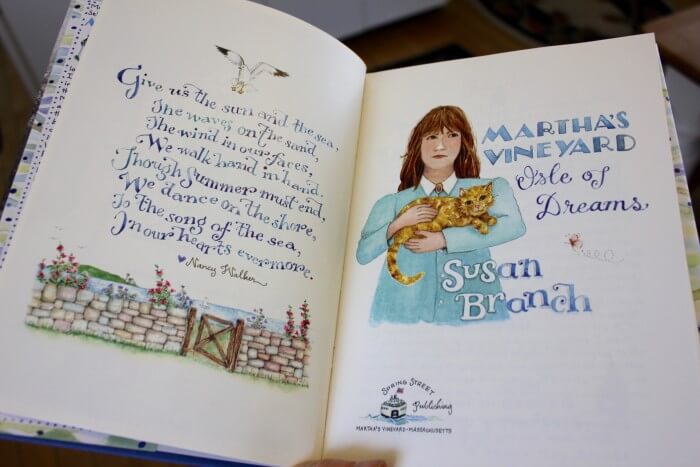 Give us the sun and the sea,
The waves on the sand,
The wind in our faces,
We walk hand in hand.
Though Summer must end,
We dance on the shore,
To the song of the sea,
In our hearts evermore.
Nancy Walker
MARTHA'S
VINEYARD
Isle of
Dreams
SUSAN
BRANCH
SPRING STREET
Publishing
MARTHA'S VINEYARD • MASSACHUSETTS